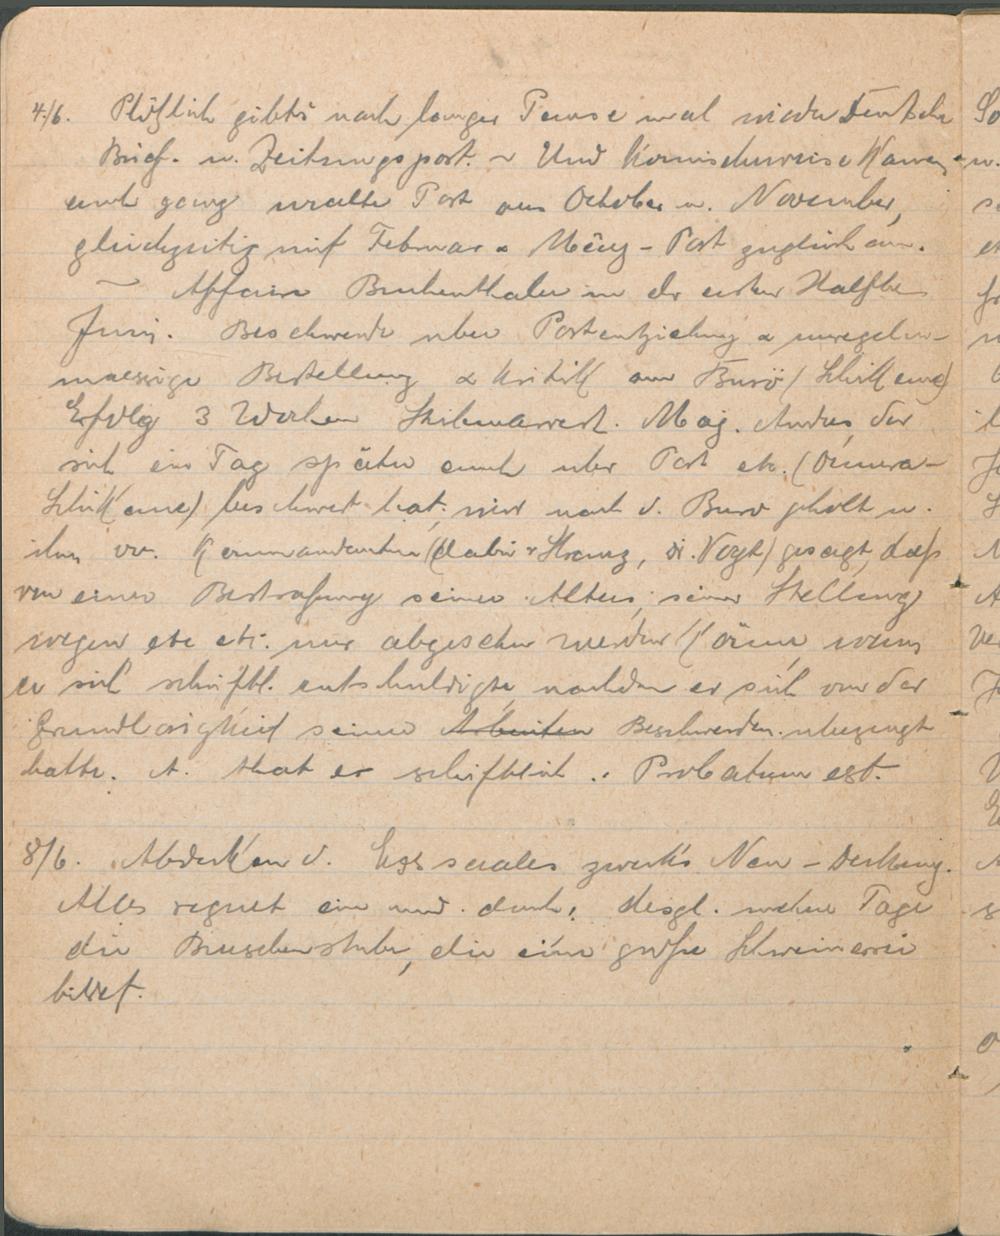 4./6. Plötzlich gibts nach langer Pause mal wieder Deutsche
Brief- u. Zeitungspost. ~ Und komischerweise kamen
auch ganz uralte Post aus October u. November,
gleichzeitig mit Februar & März-Post zugleich an.
~ Affaire Bruhenthaler in der ersten Hälfte
Juni. Beschwerde über Postentziehung & unregel-
maessige Bestellung & Kritik am Büro (Schikane)
Erfolg 3 Wochen Stubenarrest. Maj. Andres, der
sich ein Tag später auch über Post etc.
Schikane) beschwert hat, wird nach d. Buro geholt u.
ihm v. Kommandanten gesagt, daß
von einer Bestrafung seines Alters, seiner Stellung
wegen etc etc. nur abgesehen werden könne wenn
er sich schriftl. entschuldigte, nachdem er sich von der
Grundlosigkeit seiner Arbeiten Beschwerden überzeugt
hatte. A. that es schriftlich. Probatum est.
8/6. Abdecken d. Esssaales zwecks Neu-Deckung.
Alles regnet ein und durch; desgl. mehre Tage
die Burschenstube, die eine große Schweinerei
bildet.